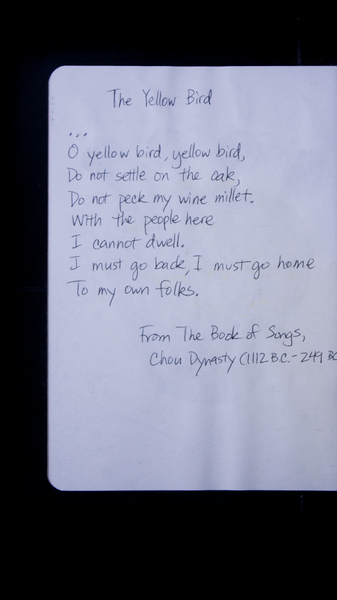 The Yellow Bird
...
O yellow bird, yellow bird,
Do not settle on the oak,
Do not peck my wine millet.
With the people here
I cannot dwell.
I must go back, I must go home
To my own folks.
From The Book of Songs,
Chou Dynasty (1112 B.C. - 249 BC